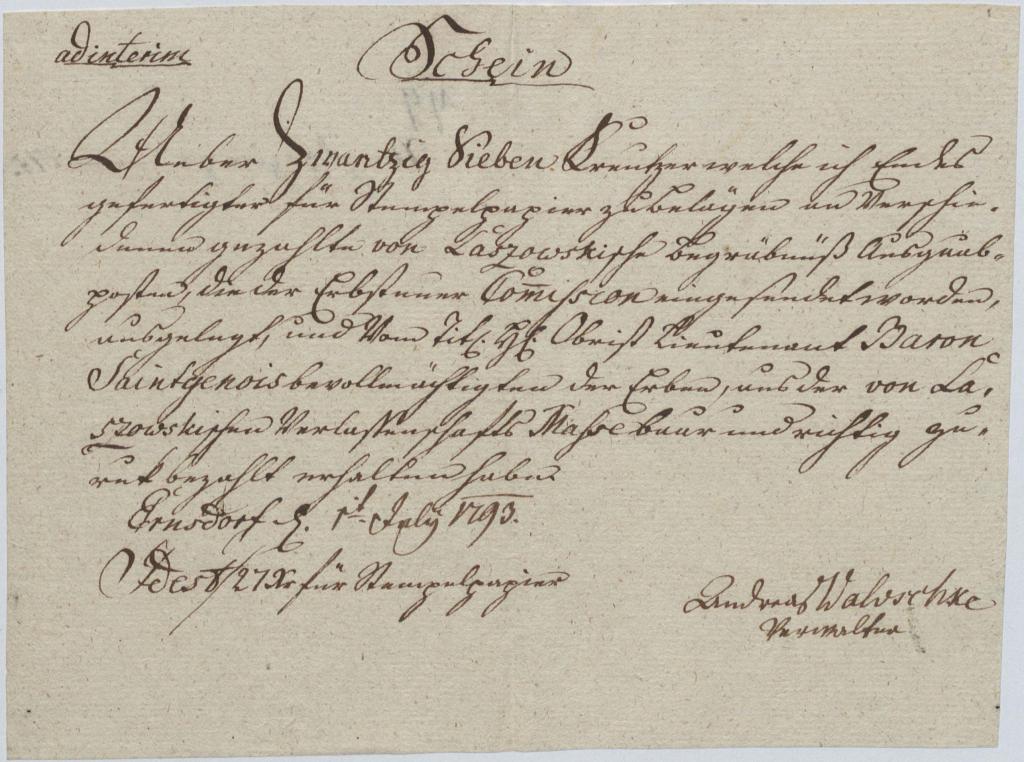 ad interim
Schein
Ueber Zwantzig Sieben Kreutzer welche ich Endes
gefertigter für Stempelpapier zu belägen an Verschie-
denen gezahlte von Laszowskische Begräbnüß Ausgaab-
posten, die der Erbsteuer Commission eingesendet worden,
ausgelegt, und Vom Tit: H: Obrist Lieutenant Baron
Saintgenois bevollmächtigten der Erben, aus der von La-
szowskischen Verlassenschafts Masse baar und richtig zu-
ruk bezahlt erhalten habe.
Ernsdorf d. 1t July 1793.
Id est / 27 Xr für Stempelpapier
Andreas Waloschke
Verwalter